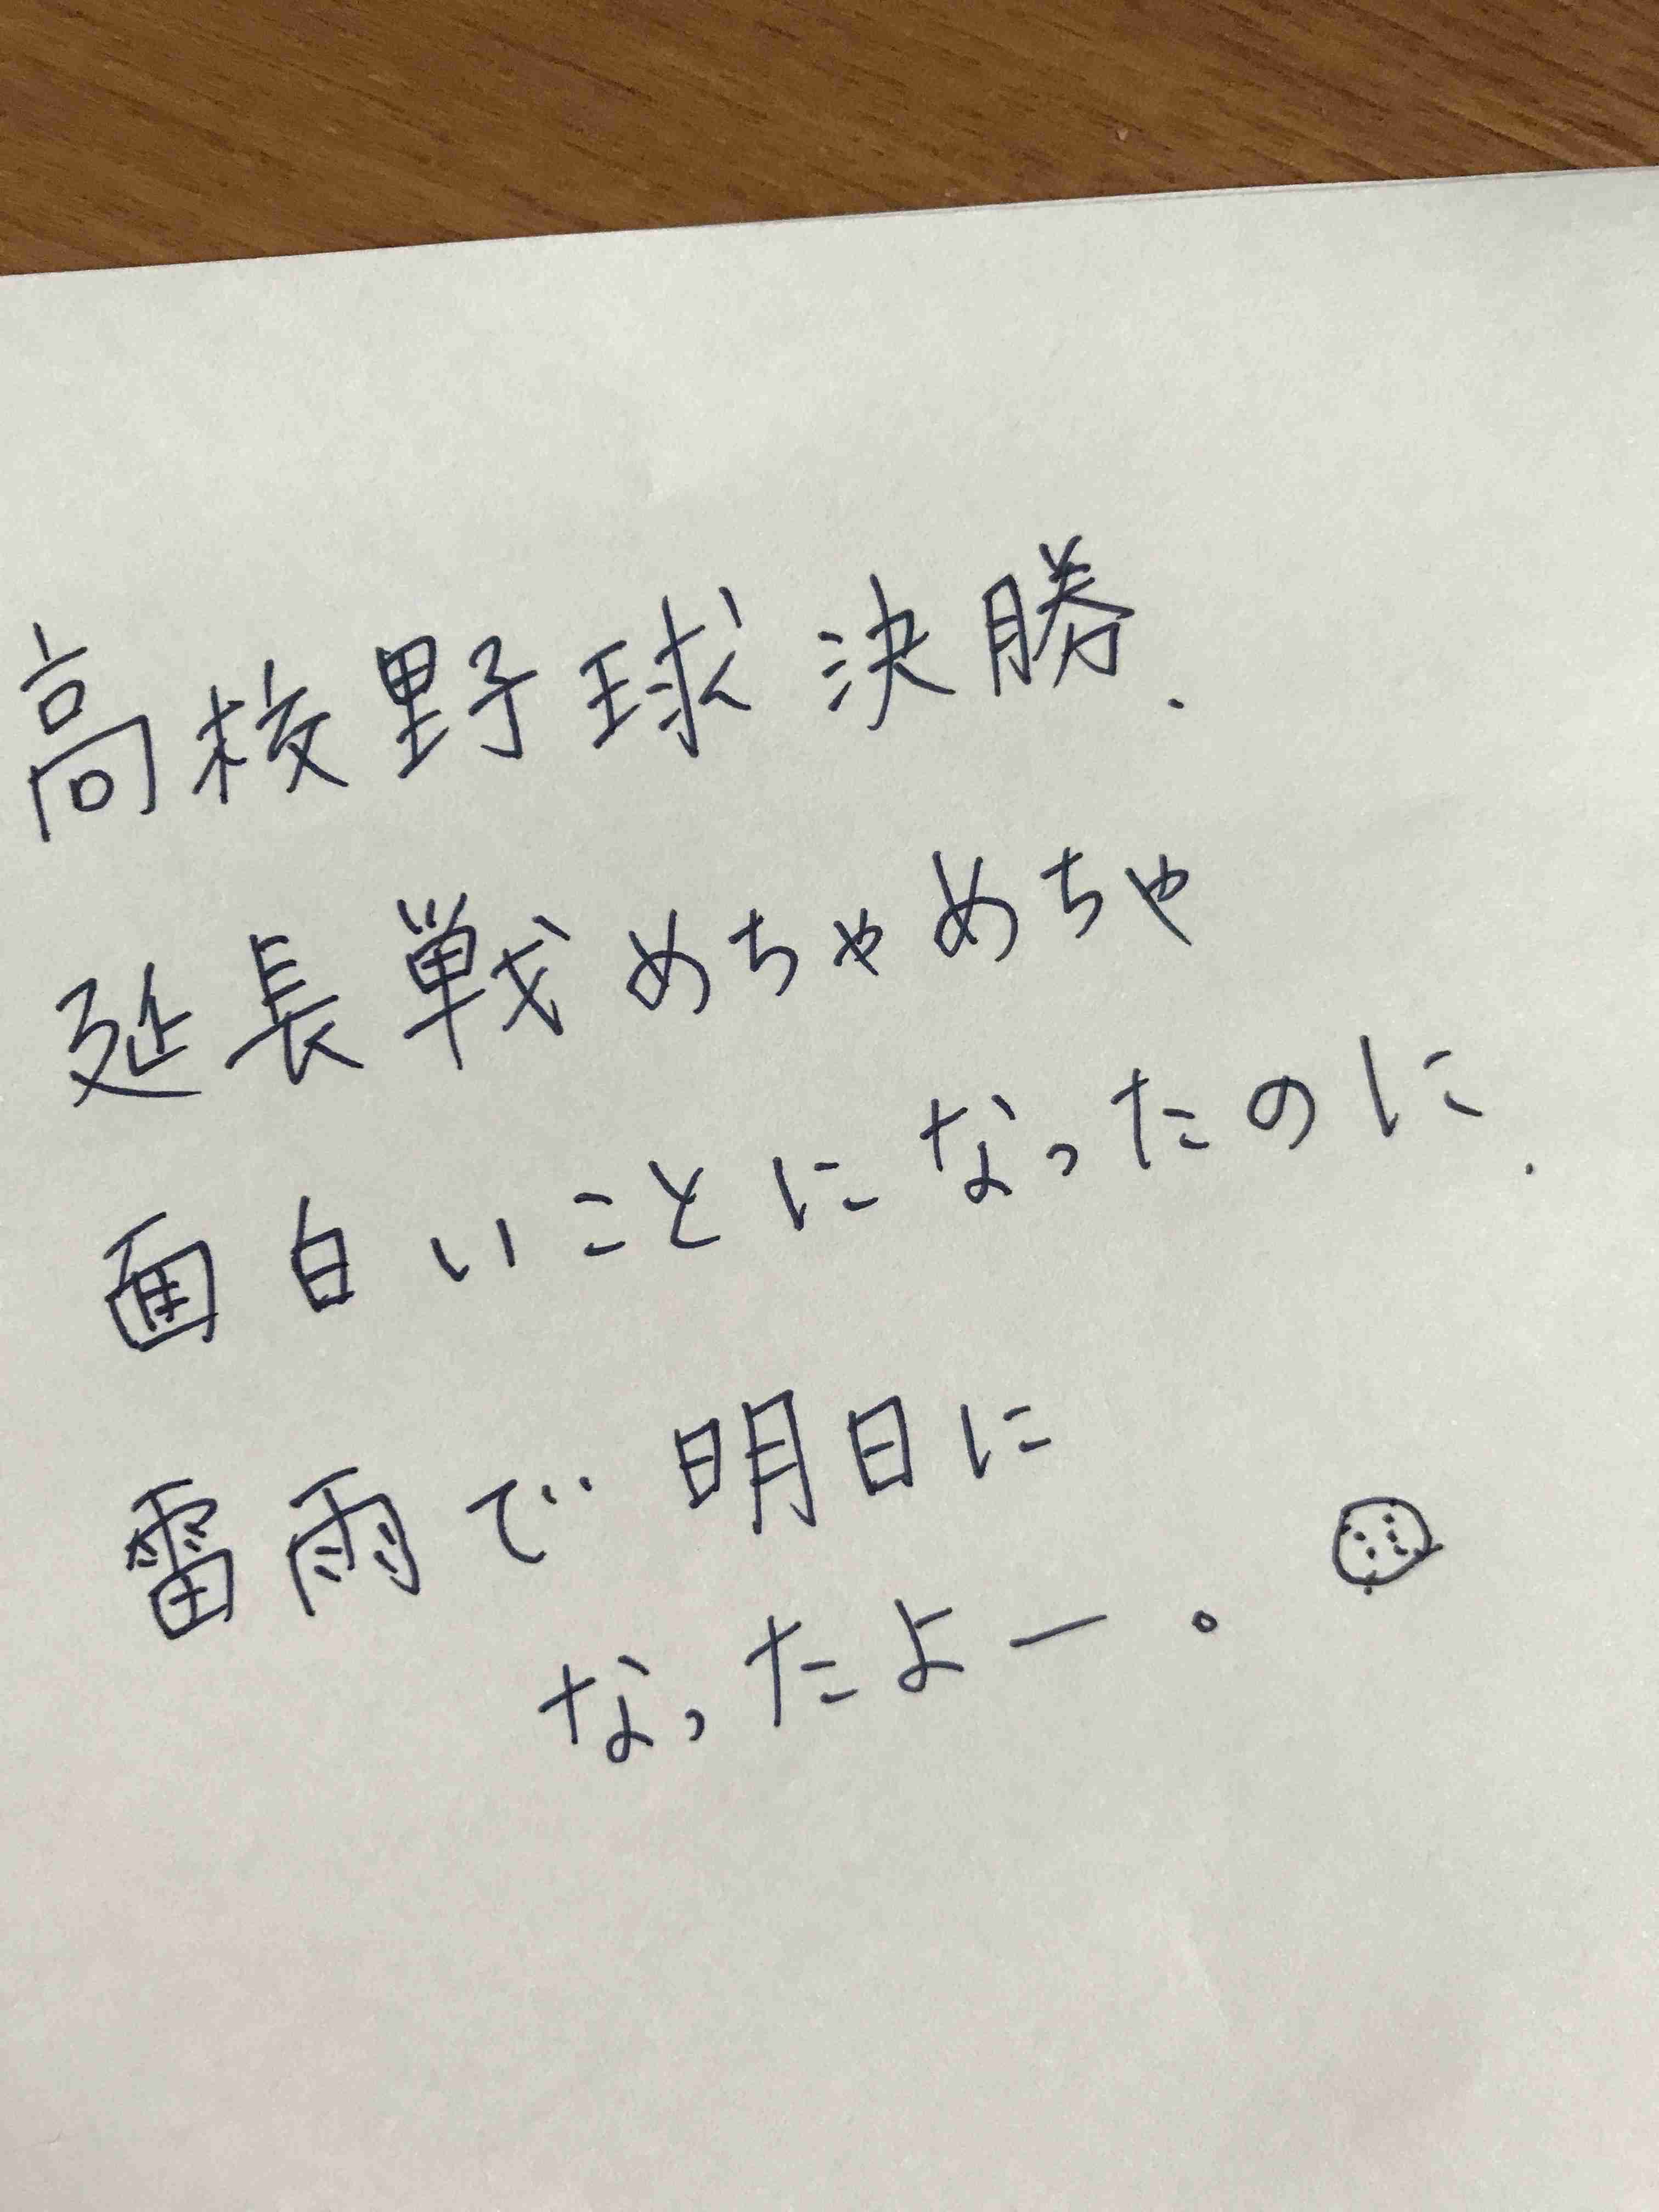 高校野球決勝.
延長戦めちゃめちゃ
面白いことになったのに.
雷雨で明日に
なったよー。